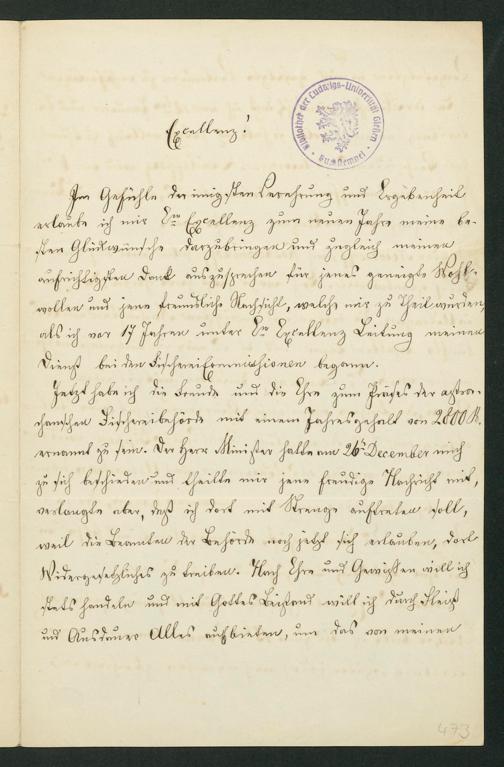 Bibliothek der Ludwigs-Universität Gießen
Buchstempel
Excellenz!
Im Gefühle der innigsten Verehrung und Ergebenheit
erlaube ich mir Ew Excellenz zum neuen Jahre meine be-
sten Glückwünsche darzubringen und zugleich meinen
aufrichtigsten Dank auszusprechen für jenes geneigte Wohl-
wollen und jene freundliche Nachsicht, welche mir zu Theil wurden,
als ich vor 17 Jahren unter Ew Excellenz Leitung meinen
Dienst bei den Fischereicommissionen begann.
Jetzt habe ich die Freude und die Ehre zum Präses der astra-
chanschen Fischereibehörde mit einem Jahresgehalt von 2800 R.
ernannt zu sein. Der Herr Minister hatte am 26 December mich
zu sich beschieden und theilte mir jene freudige Nachricht mit,
verlangte aber, daß ich dort mit Strenge auftreten soll,
weil die Beamten der Behörde noch jetzt sich erlauben, dort
Widergesetzliches zu treiben. Nach Ehre und Gewissen will ich
stets handeln und mit Gottes Beistand will ich durch Fleiß
und Ausdauer Alles aufbieten, um das von meinen
473